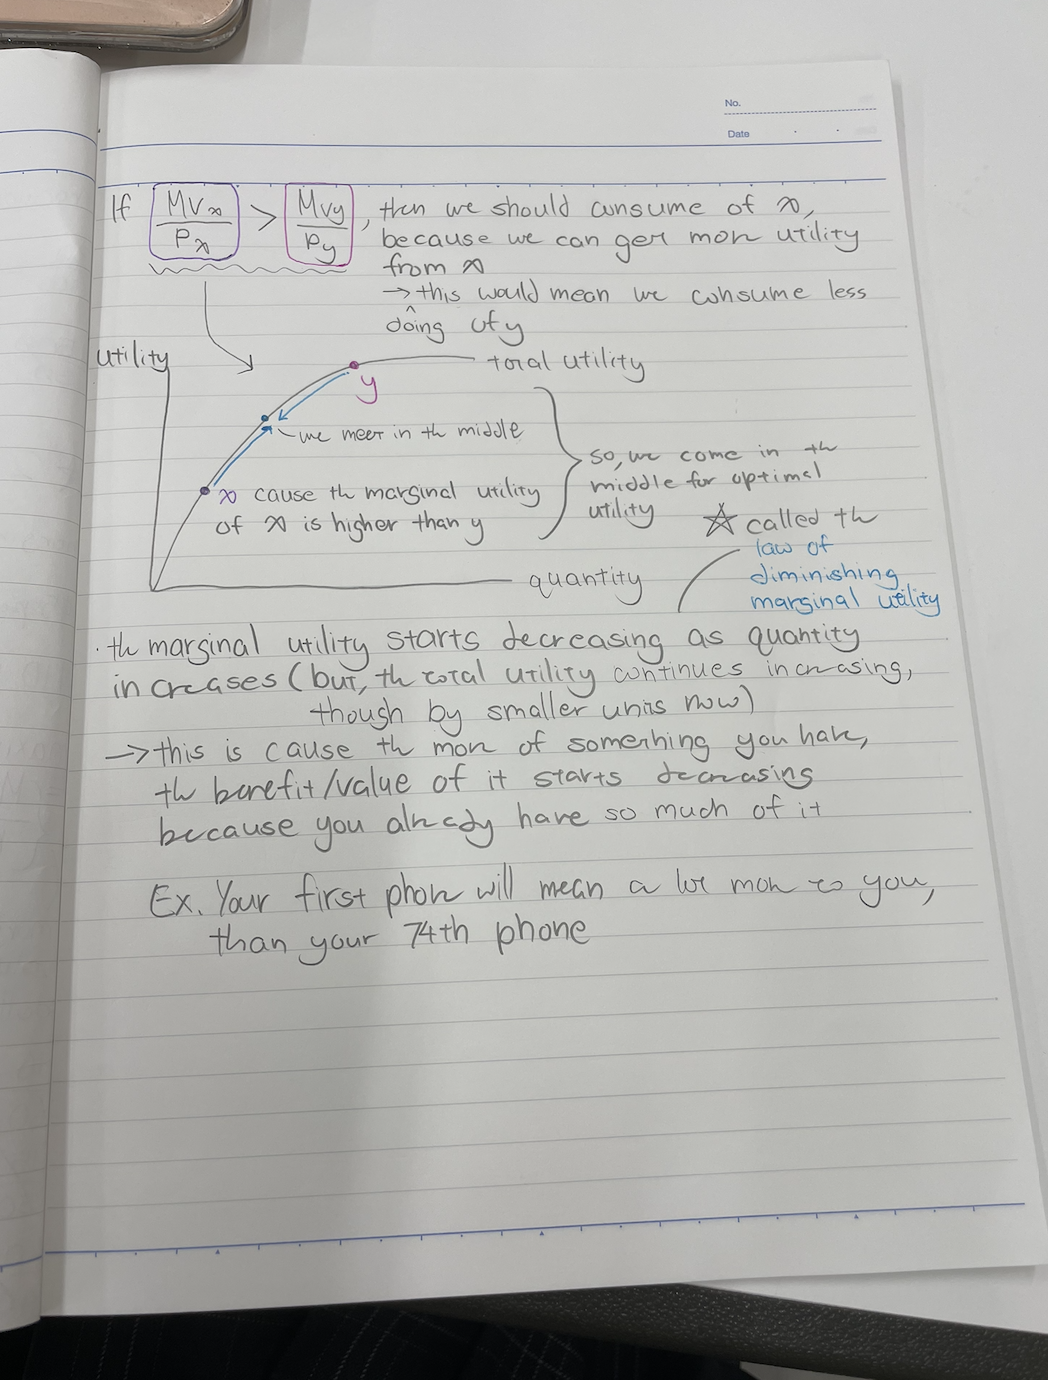 No.
Date
If MUx/Px > MUy/Py, then we should consume of x,
because we can get more utility
from x
→ this would mean we consume less
doing of y
utility
total utility
y
we meet in the middle
x cause the marginal utility
of x is higher than y
so, we come in the
middle for optimal
utility
☆ called the
law of
diminishing
marginal utility
quantity
· the marginal utility starts decreasing as quantity
increases (but, the total utility continues increasing,
though by smaller units now)
→ this is cause the more of something you have,
the benefit/value of it starts decreasing
because you already have so much of it
Ex. Your first phone will mean a lot more to you,
than your 74th phone